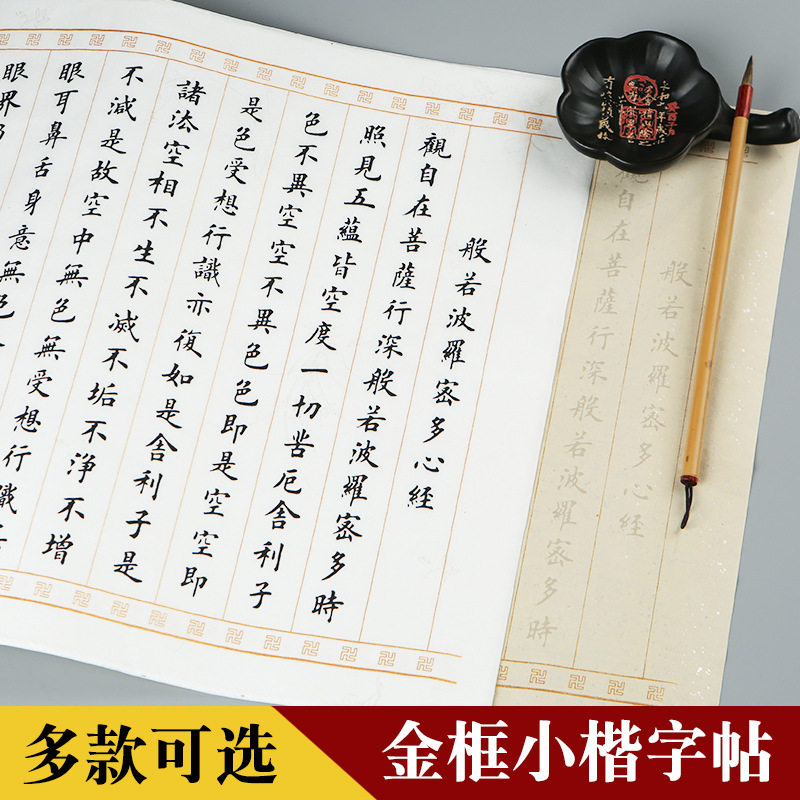 般若波羅密多心經
觀自在菩薩行深般若波羅密多時
照見五蘊皆空度一切苦厄舍利子
色不異空空不異色色即是空空即
是色受想行識亦復如是舍利子是
諸法空相不生不滅不垢不淨不增
不減是故空中無色無受想行識
眼耳鼻舌身意無色
眼界
般若波羅密多心經
觀自在菩薩行深般若波羅密多時
多款可选
金框小楷字帖